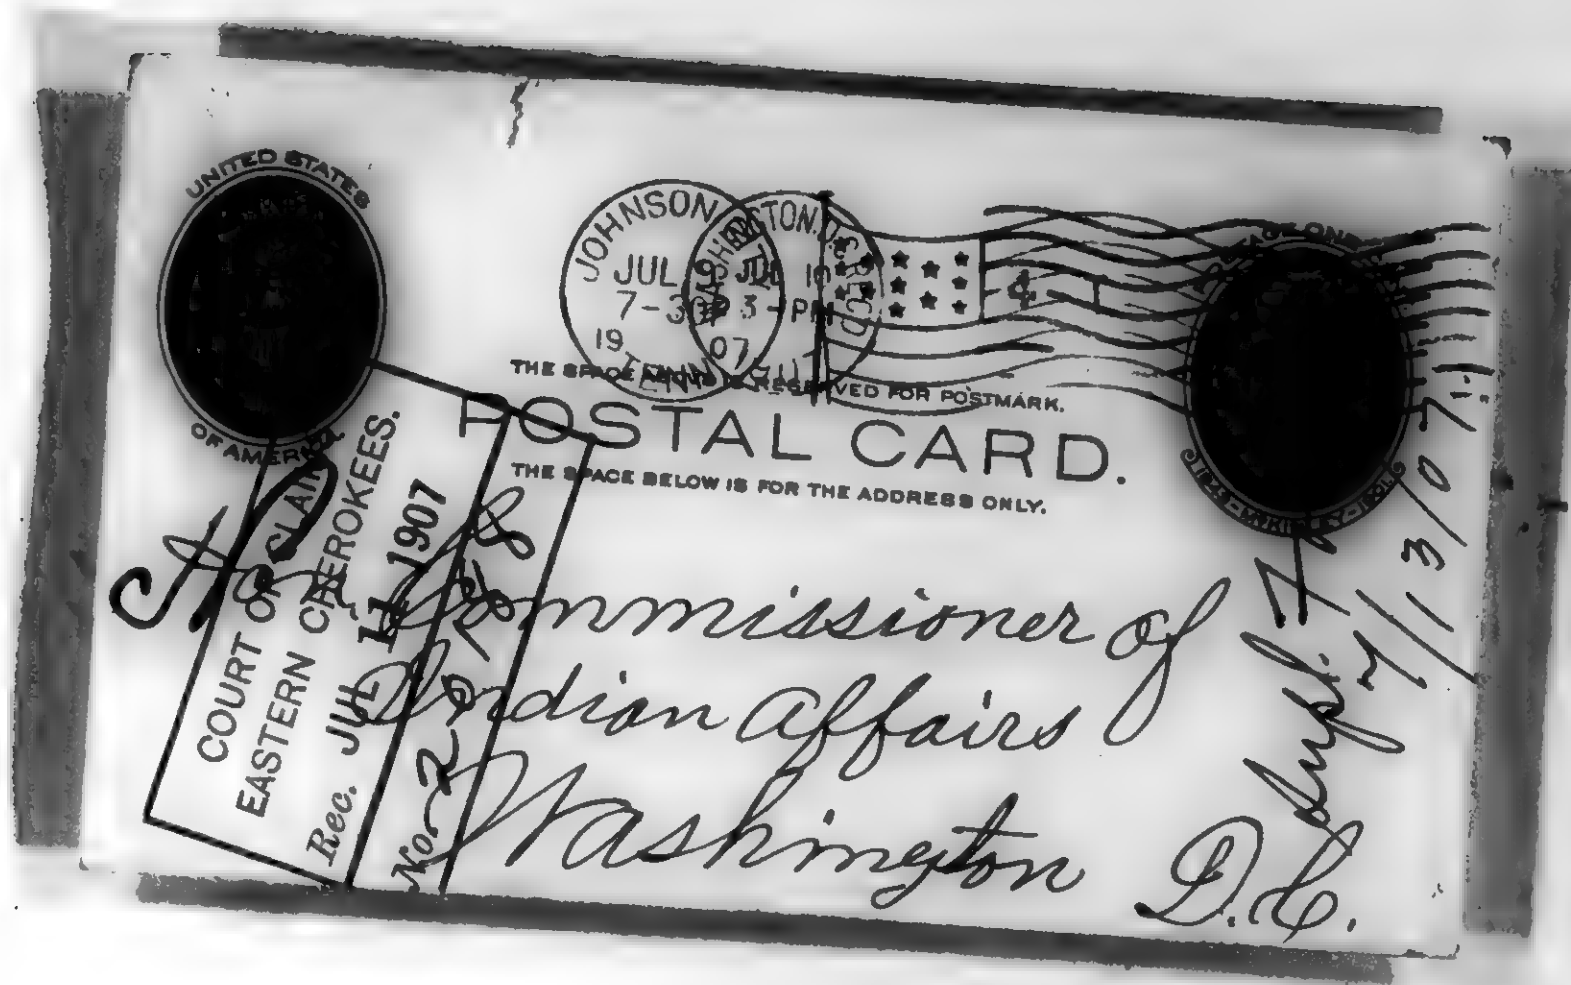 UNITED STATES
OF AMERICA
JOHNSON CITY
JUL 9
7-30P
1907
TENN.
WASHINGTON, D.C. REC'D
JUL 10
3-PM
07
4
POSTAGE ONE
1843-McKINLEY-1901
THE SPACE ABOVE IS RESERVED FOR POSTMARK.
POSTAL CARD.
THE SPACE BELOW IS FOR THE ADDRESS ONLY.
COURT OF CLAIMS
EASTERN CHEROKEES.
Rec. JUL 11 1907
No.
Hon Commissioner of
Indian Affairs
Washington D.C.
7/13/07